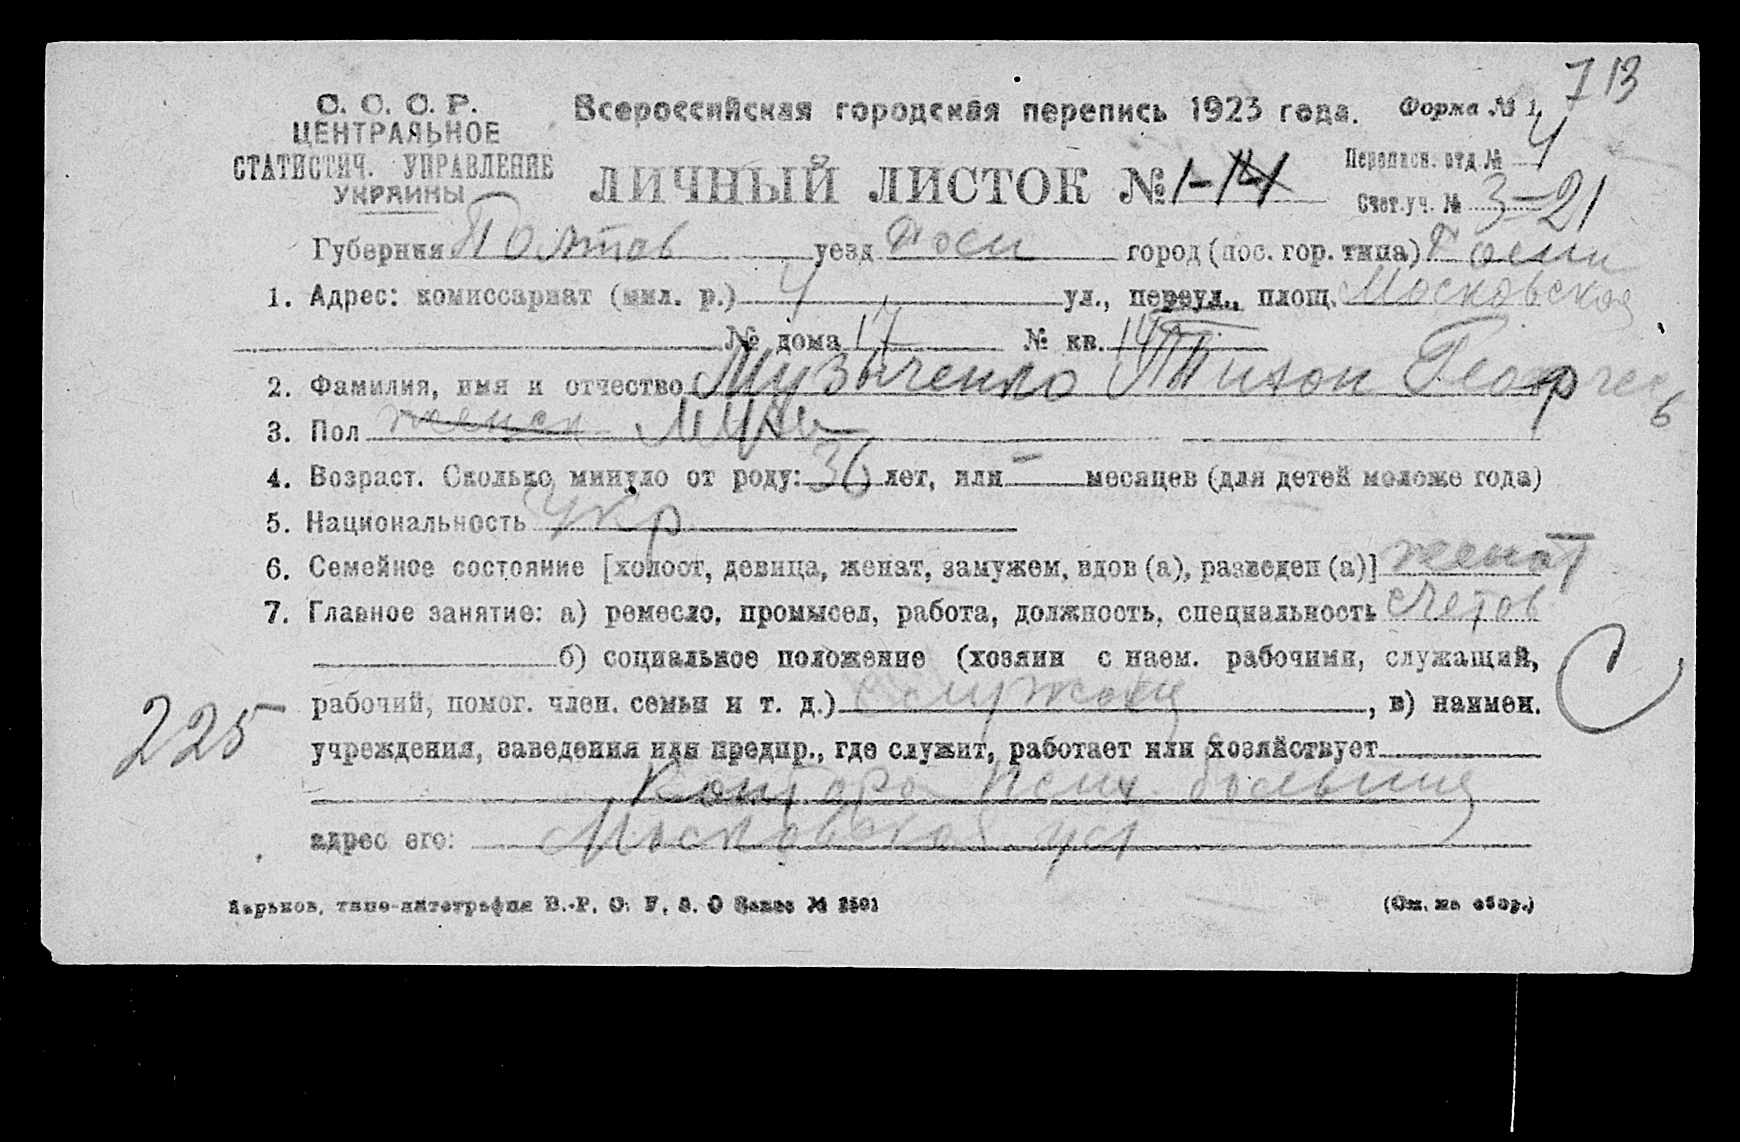 713
С. С. С. Р.
ЦЕНТРАЛЬНОЕ
СТАТИСТИЧ. УПРАВЛЕНИЕ
УКРАИНЫ
Всероссийская городская перепись 1923 года.
Форма № 1
ЛИЧНЫЙ ЛИСТОК № 1-14
Переписн. отд. № 4
Счет. уч. № 3-21
Губерния Полтав уезд город (пос. гор. типа)
1. Адрес: комиссариат (мил. р.) 4 ул., переул., площ. Московская
№ дома 17 № кв. 14
2. Фамилия, имя и отчество Музыченко Тихон Георгиев
3. Пол женск муж
4. Возраст. Сколько минуло от роду: 36 лет, или - месяцев (для детей моложе года)
5. Национальность Укр
6. Семейное состояние [холост, девица, женат, замужем, вдов (а), разведен (а)] женат
7. Главное занятие: а) ремесло, промысел, работа, должность, специальность счетов
б) социальное положение (хозяин с наем. рабочими, служащий,
рабочий, помог. член. семьи и т. д.) служащ, в) наимен.
225
С
учреждения, заведения или предпр., где служит, работает или хозяйствует
Контора Псих. больниц
адрес его: Московская ул
Харьков, типо-литография Заказ №
(См. на обор.)